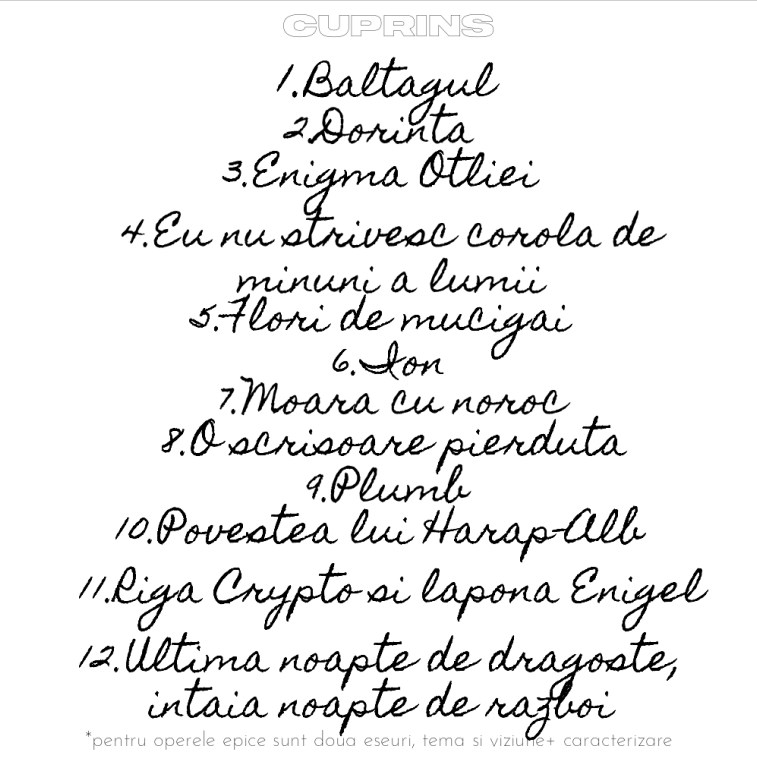 CUPRINS
1.Baltagul
2.Dorinta
3.Enigma Otliei
4.Eu nu strivesc corola de
minuni a lumii
5.Flori de mucigai
6.Ion
7.Moara cu noroc
8.O scrisoare pierduta
9.Plumb
10.Povestea lui Harap-Alb
11.Riga Crypto si lapona Enigel
12.Ultima noapte de dragoste,
intaia noapte de razboi
*pentru operele epice sunt doua eseuri, tema si viziune+ caracterizare